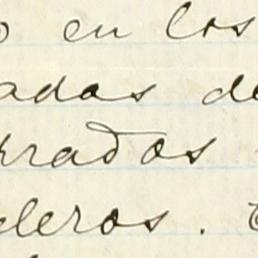 o en los
adas de
rrados
deros.